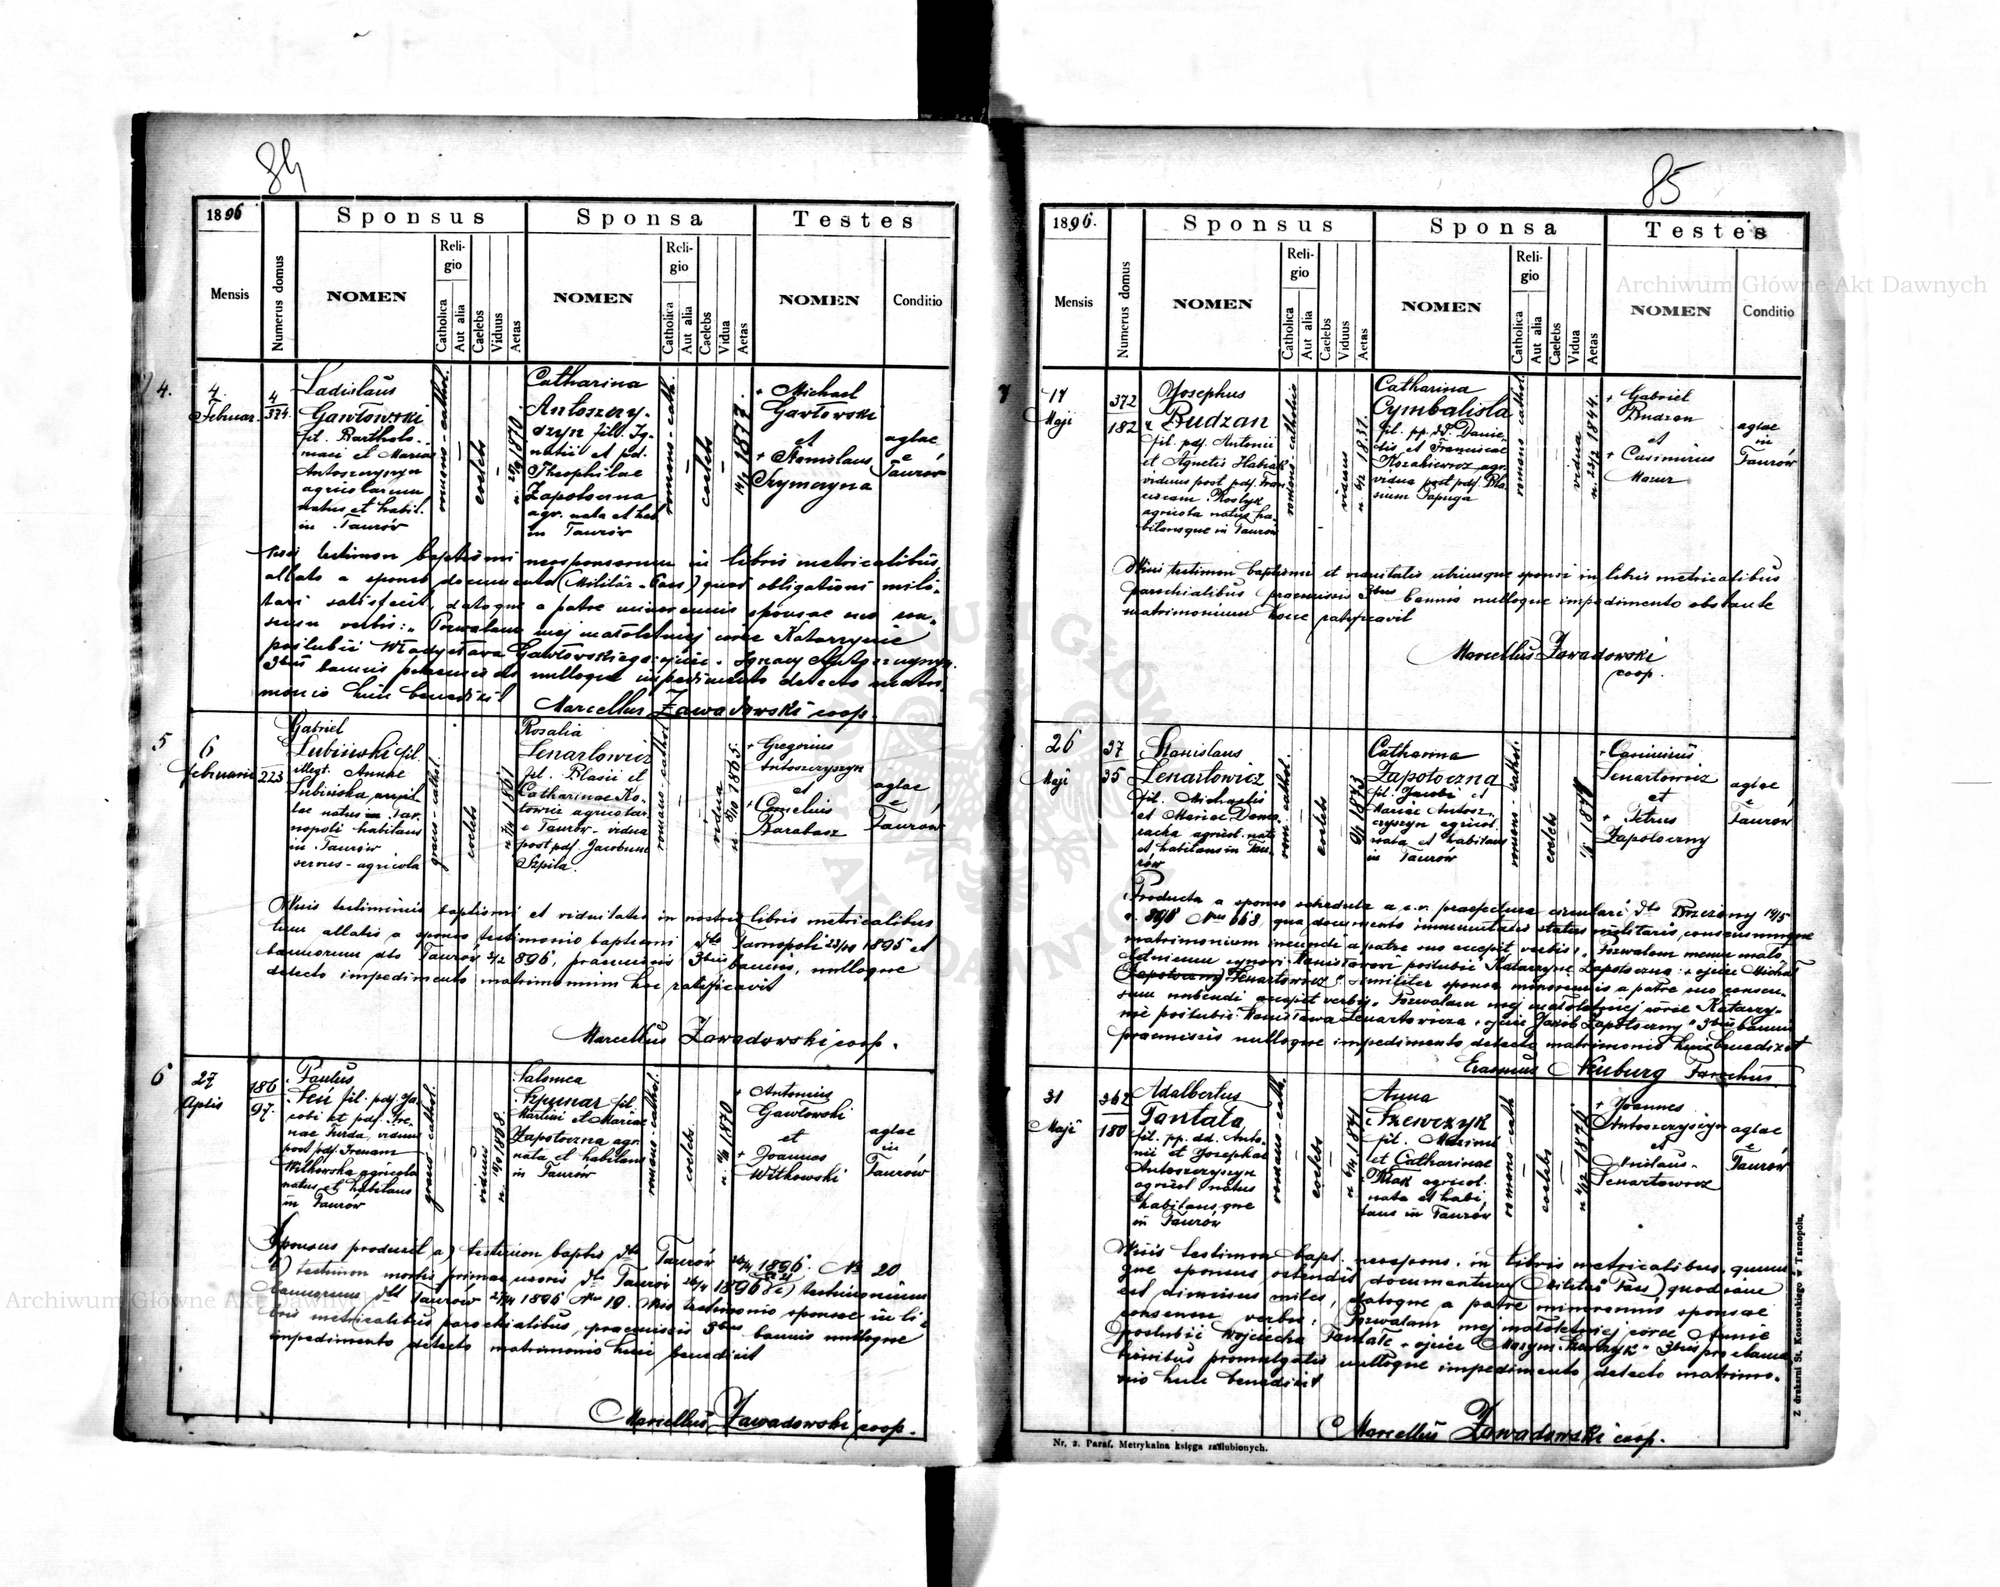 84
1896
Sponsus
Sponsa
Testes
Mensis
Numerus domus
NOMEN
Religio
Catholica
Aut alia
Caelebs
Viduus
Aetas
NOMEN
Religio
Catholica
Aut alia
Caelebs
Vidua
Aetas
NOMEN
Conditio
4.
4.
Februar.
4
374.
Ladislaus
Gawłowski
fil. Bartholo-
maei et Mariae
Antoszczyszyn
agricolarum
natus et habit.
in Taurów
romano-cathol.
coelebs
Catharina
Antoszczy-
szyn fill. Ig-
natii et pd.
Theophilae
Zapotoczna
agr. nata et hab
in Taurów
romano-cath.
coelebs
14/1 1877
+ Michael
Gawłowski
et
+ Stanislaus
Szymczyna
aglae
e
Taurów
testimon baptismi neosponsorum in libris metricalibus,
allato a sponso documento (Militär-Pass) quod obligationi mili-
tari satisfecit, datoque a patre minorennis sponsae suo con-
sensu verbis: "Pozwalam mej małoletniej córce Katarzynie
poślubić Władysława Gawłowskiego: ojciec. Ignacy Antoszczyszyn.
3bus bannis praemissis nulloque impedimento detecto matri-
monio huic benedixi
Marcellus Zawadowski coop.
5
6
februarii
223
Gabriel
Lubiński fil.
illegt. Annae
Lubińska
natus in Tar-
nopoli habitans
in Taurów
servus-agricola
graeco-cathol.
coelebs
Rosalia
Lenartowicz
fil. Blasii et
Catharinae Ko-
agricolar.
e Taurów - vidua
post pdf. Jacobum
Szpila.
romano-cathol.
vidua
+ Gregorius
Antoszczyszyn
et
+ Cornelius
Barabasz
aglae
e
Taurów
Visis testimoniis baptismi et viduitatis in nostris libris metricalibus
tum allatis a sponso testimonio baptismi dto Tarnopoli 23/10 1895 et
bannorum dto Taurów 3/2 896, praemissis 3bus bannis, nulloque
detecto impedimento matrimonium hoc ratificavit
Marcellus Zawadowski coop.
6
27
Aplis
186
97.
Paulus
fil. pdf. Ja-
cobi et pdf. Ire-
nae Furda, viduus
post pdf. Irenam
Witkowska agricola
natus et habitans
in Taurów
graeco-cathol.
viduus
Salomea
Szpunar fil.
Martini et Mariae
Zapotoczna agr.
nata et habitans
in Taurów
romano-cathol.
coelebs
+ Antonius
Gawłowski
et
+ Joannes
Witkowski
aglae
in
Taurów
Sponsus produxit a) testimon baptis dto Taurów 26/4 1896 No 20
b) testimon mortis primae uxoris dto Taurów 26/4 1896 c) testimonium
bannorum dto Taurów 27/4 1896 Nro 19. Viso testimonio sponsae in li-
bris metricalibus parochialibus, praemissis 3bus bannis nulloque
impedimento detecto matrimonio huic benedixit
Marcellus Zawadowski coop.
85
1896.
Sponsus
Sponsa
Testes
Mensis
Numerus domus
NOMEN
Religio
Catholica
Aut alia
Caelebs
Viduus
Aetas
NOMEN
Religio
Catholica
Aut alia
Caelebs
Vidua
Aetas
NOMEN
Conditio
7
17
Maji
372
182
Josephus
Budzan
fil. pdf. Antonii
et Agnetis Habiak
viduus post pdf. Fran-
ciscam
agricola natus ha-
bitansque in Taurów
romano-catholic
viduus
Catharina
Cymbalista
fil. pp. dd. Danie-
lis et Franciscae
Kozakiewicz agr.
vidua post pdf. Bla-
sium Papuga
romano cathol.
vidua
n. 23/2 1844.
+ Gabriel
Budzan
et
+ Casimirus
Mazur
aglae
in
Taurów
Visis testimon baptismi et viduitatis utriusque sponsi in libris metricalibus
parochialibus praemissis 3bus bannis nulloque impedimento obstante
matrimonium hocce ratificavit
Marcellus Zawadowski
coop.
26
Maji
37
35
Stanislaus
Lenartowicz
fil. Michaelis
et Mariae Doma-
racka agricol. nat.
et habitans in Tau-
rów
rom. cathol.
coelebs
Catharina
Zapotoczna
fil. Jacobi et
Mariae Antosz-
czyszyn agricol.
nata et habitans
in Taurów
romano-cathol.
coelebs
+ Casimirus
Lenartowicz
et
+ Petrus
Zapotoczny
aglae
e
Taurów
Producta a sponso schedula a c.r. praefectura circulari dto Brzeżany 19/5
896 Nro 668, qua documento immunitatis status militaris, consensumque
matrimonium ineundi a patre suo accepit verbis: "Pozwalam memu mało-
letniemu synowi Stanisławowi poślubić Katarzynę Zapotoczną: + ojciec Michał
Zapotoczny Lenartowicz" similiter sponsa minorennis a patre suo consen-
sum nubendi accepit verbis "Pozwalam mej małoletniej córce Katarzy-
nie poślubić Stanisława Lenartowicza + ojciec Jakób Zapotoczny" 3bus bannis
praemissis nulloque impedimento detecto matrimonio huic benedixit
Erasmus Neuburg Parochus
31
Maji
362
180
Adalbertus
Tantała
fil. pp. dd. Anto-
nii et Josephae
Antoszczyszyn
agricol. natus
habitansque
in Taurów
romano-cath.
coelebs
Anna
Szewczyk
fil. Maximi
et Catharinae
Ptak agricol.
nata et habi-
tans in Taurów
romano-cath
coelebs
+ Joannes
Antoszczyszyn
et
Nicolaus
Lenartowicz
aglae
e
Taurów
Visis testimon bapt. neospons. in libris metricalibus, quum-
que sponsus ostendit documentum (Militär Pass) quod iam
est dimissus miles, datoque a patre minorennis sponsae
consensu verbis: "Pozwalam mej małoletniej córce Annie
poślubić Wojciecha Tantałę + ojciec Maxym Szewczyk" 3bus proclama-
tionibus promulgatis nulloque impedimento detecto matrimo-
nio huic benedixit
Marcellus Zawadowski coop.
Nr. 2. Paraf. Metrykalna księga zaślubionych.
Z drukarni St. Kossowskiego w Tarnopolu.
Archiwum Główne Akt Dawnych
Archiwum Główne Akt Dawnych